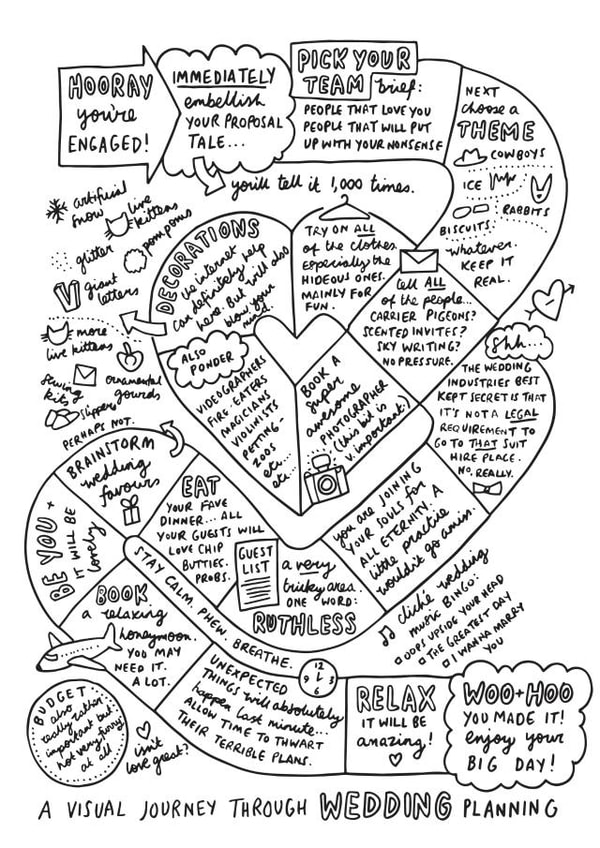 HOORAY
you're
ENGAGED!
IMMEDIATELY
embellish
YOUR PROPOSAL
TALE...
you'll tell it 1,000 times.
PICK YOUR
TEAM brief:
PEOPLE THAT LOVE YOU
PEOPLE THAT WILL PUT
UP WITH YOUR NONSENSE
NEXT
choose a
THEME
COWBOYS
ICE
RABBITS
BISCUITS.
whatever.
KEEP IT
REAL.
Shh...
THE WEDDING
INDUSTRIES BEST
KEPT SECRET IS THAT
IT'S NOT A LEGAL
REQUIREMENT TO
GO TO THAT SUIT
HIRE PLACE.
NO, REALLY.
you are JOINING
YOUR SOULS for
ALL ETERNITY. A
little practice
wouldn't go amiss.
cliché wedding
music BINGO:
OOPS UPSIDE YOUR HEAD
THE GREATEST DAY
I WANNA MARRY
YOU
tell ALL
of the people...
CARRIER PIGEONS?
SCENTED INVITES?
SKY WRITING?
NO PRESSURE.
TRY ON ALL
of the clothes.
Especially the
HIDEOUS ONES.
MAINLY FOR
FUN.
DECORATIONS
the internet
can definitely help
here. But will also
blow your
mind.
artificial
snow
live
kittens
glitter
pompoms
giant
letters
more
live kittens
sewing
kits
ornamental
gourds
slippers
PERHAPS NOT.
ALSO
PONDER
VIDEOGRAPHERS
FIRE-EATERS
MAGICIANS
VIOLINISTS
PETTING
ZOOS
etc...
etc...
BOOK A
super
awesome
PHOTOGRAPHER
(this bit is
v. important.)
GUEST
LIST
a very
tricky area.
ONE WORD:
RUTHLESS
EAT
YOUR FAVE
DINNER... ALL
YOUR GUESTS WILL
LOVE CHIP
BUTTIES.
PROBS.
BRAINSTORM
wedding
favours
BE YOU +
IT WILL BE
lovely
BOOK
a relaxing
honeymoon.
YOU MAY
NEED IT.
A LOT.
STAY CALM. PHEW. BREATHE.
BUDGET
also
really rather
important but
not very funny
at all
isn't
love great?
12
3
6
9
UNEXPECTED
THINGS will absolutely
happen last minute...
ALLOW TIME TO THWART
THEIR TERRIBLE PLANS.
RELAX
IT WILL BE
amazing!
WOO+HOO
YOU MADE IT!
enjoy your
BIG DAY!
A VISUAL JOURNEY THROUGH WEDDING PLANNING